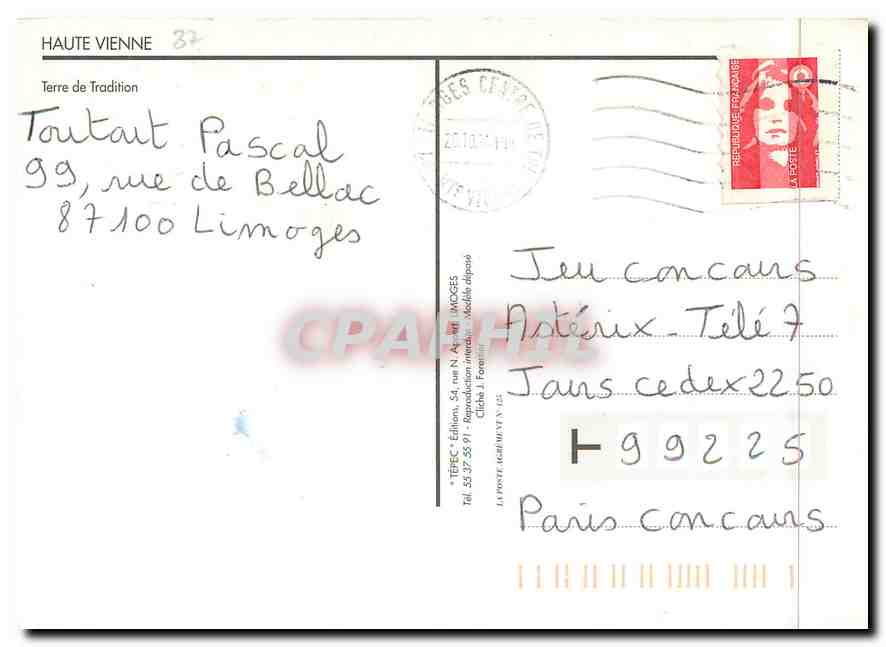 HAUTE VIENNE 87
Terre de Tradition
Toutait Pascal
99, rue de Bellac
87100 Limoges
LIMOGES CENTRE DE TRI
REPUBLIQUE FRANÇAISE
LA POSTE
"TÉPEC" Éditions, 54, rue N. Appert LIMOGES
Tél. 55 37 55 91 - Reproduction interdite - Modèle déposé
Cliché J. Forestier
LA POSTE AGRÉMENT N° 125
CPAPHIL
Jeu concours
Astérix - Télé 7
Jours cedex 2250
T 99225
Paris concours